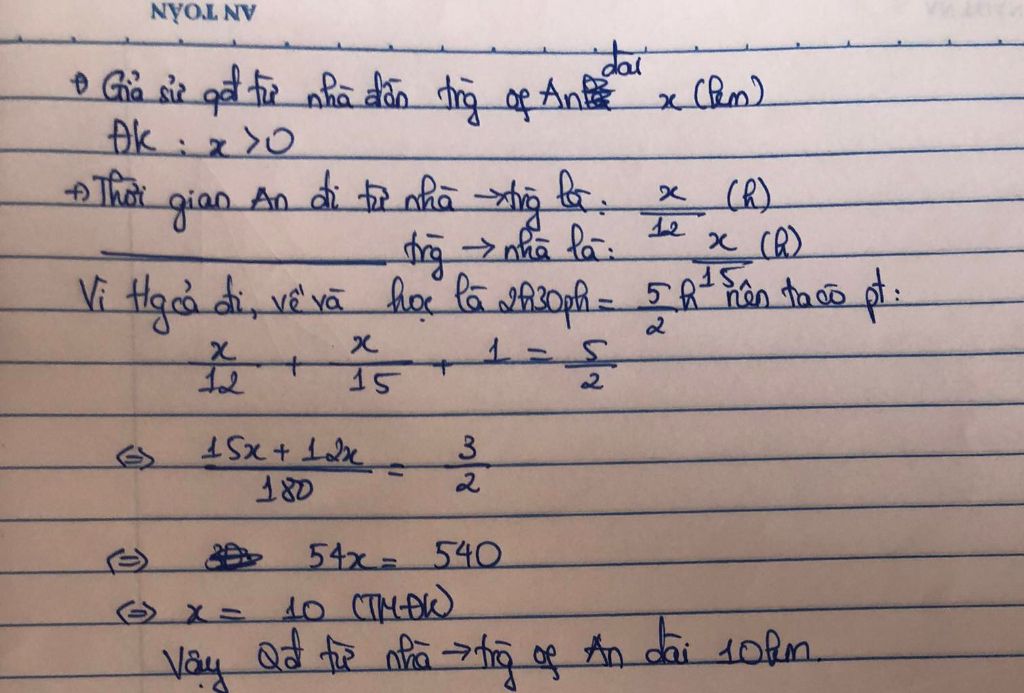 AN TOÀN
+) Giả sử qđ từ nhà đến trg of An dài x (km)
ĐK : x > 0
+) Thời gian An đi từ nhà → trg là : x/12 (h)
trg → nhà là : x/15 (h)
Vì tg cả đi, về và học là 2h30ph = 5/2 h nên ta có pt :
x/12 + x/15 + 1 = 5/2
⇔ (15x + 12x)/180 = 3/2
⇔ 54x = 540
⇔ x = 10 (TMĐK)
Vậy Qđ từ nhà → trg of An dài 10km.